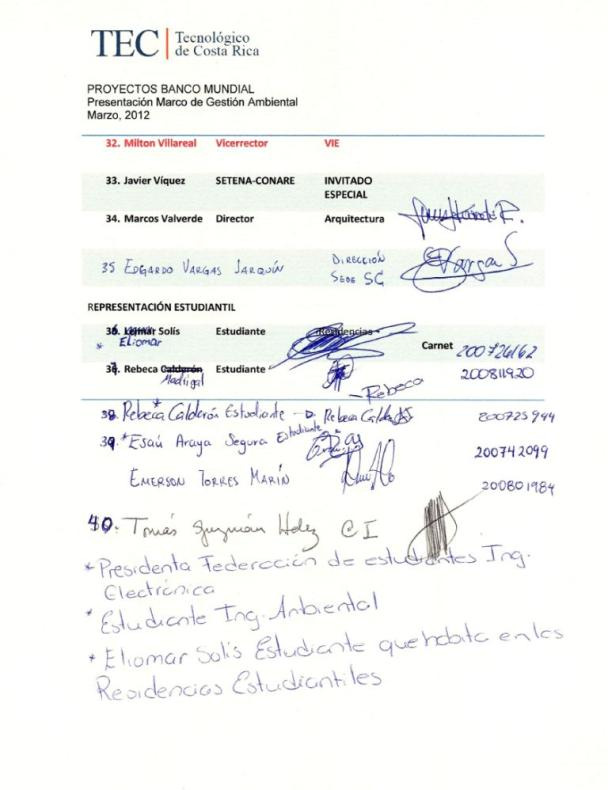 TEC | Tecnológico
de Costa Rica
PROYECTOS BANCO MUNDIAL
Presentación Marco de Gestión Ambiental
Marzo, 2012
32. Milton Villareal Vicerrector VIE
33. Javier Víquez SETENA-CONARE INVITADO
ESPECIAL
34. Marcos Valverde Director Arquitectura
35 EDGARDO VARGAS JARQUÍN DIRECCIÓN
SEDE SC
REPRESENTACIÓN ESTUDIANTIL
36. Leimar Solís Estudiante Residencias
* Eliomar Carnet 200726162
37. Rebeca Calderón Estudiante 200811920
Madrigal Rebeca
38. Rebeca Calderón Estudiante Rebeca Calderón 200725944
39. *Esaú Araya Segura Estudiante 200742099
EMERSON TORRES MARÍN 200801984
40. Tomás Guzmán Hdez CI
* Presidenta Federación de estudiantes Ing.
Electrónica
* Estudiante Ing. Ambiental
* Eliomar Solís Estudiante que habita en las
Residencias Estudiantiles